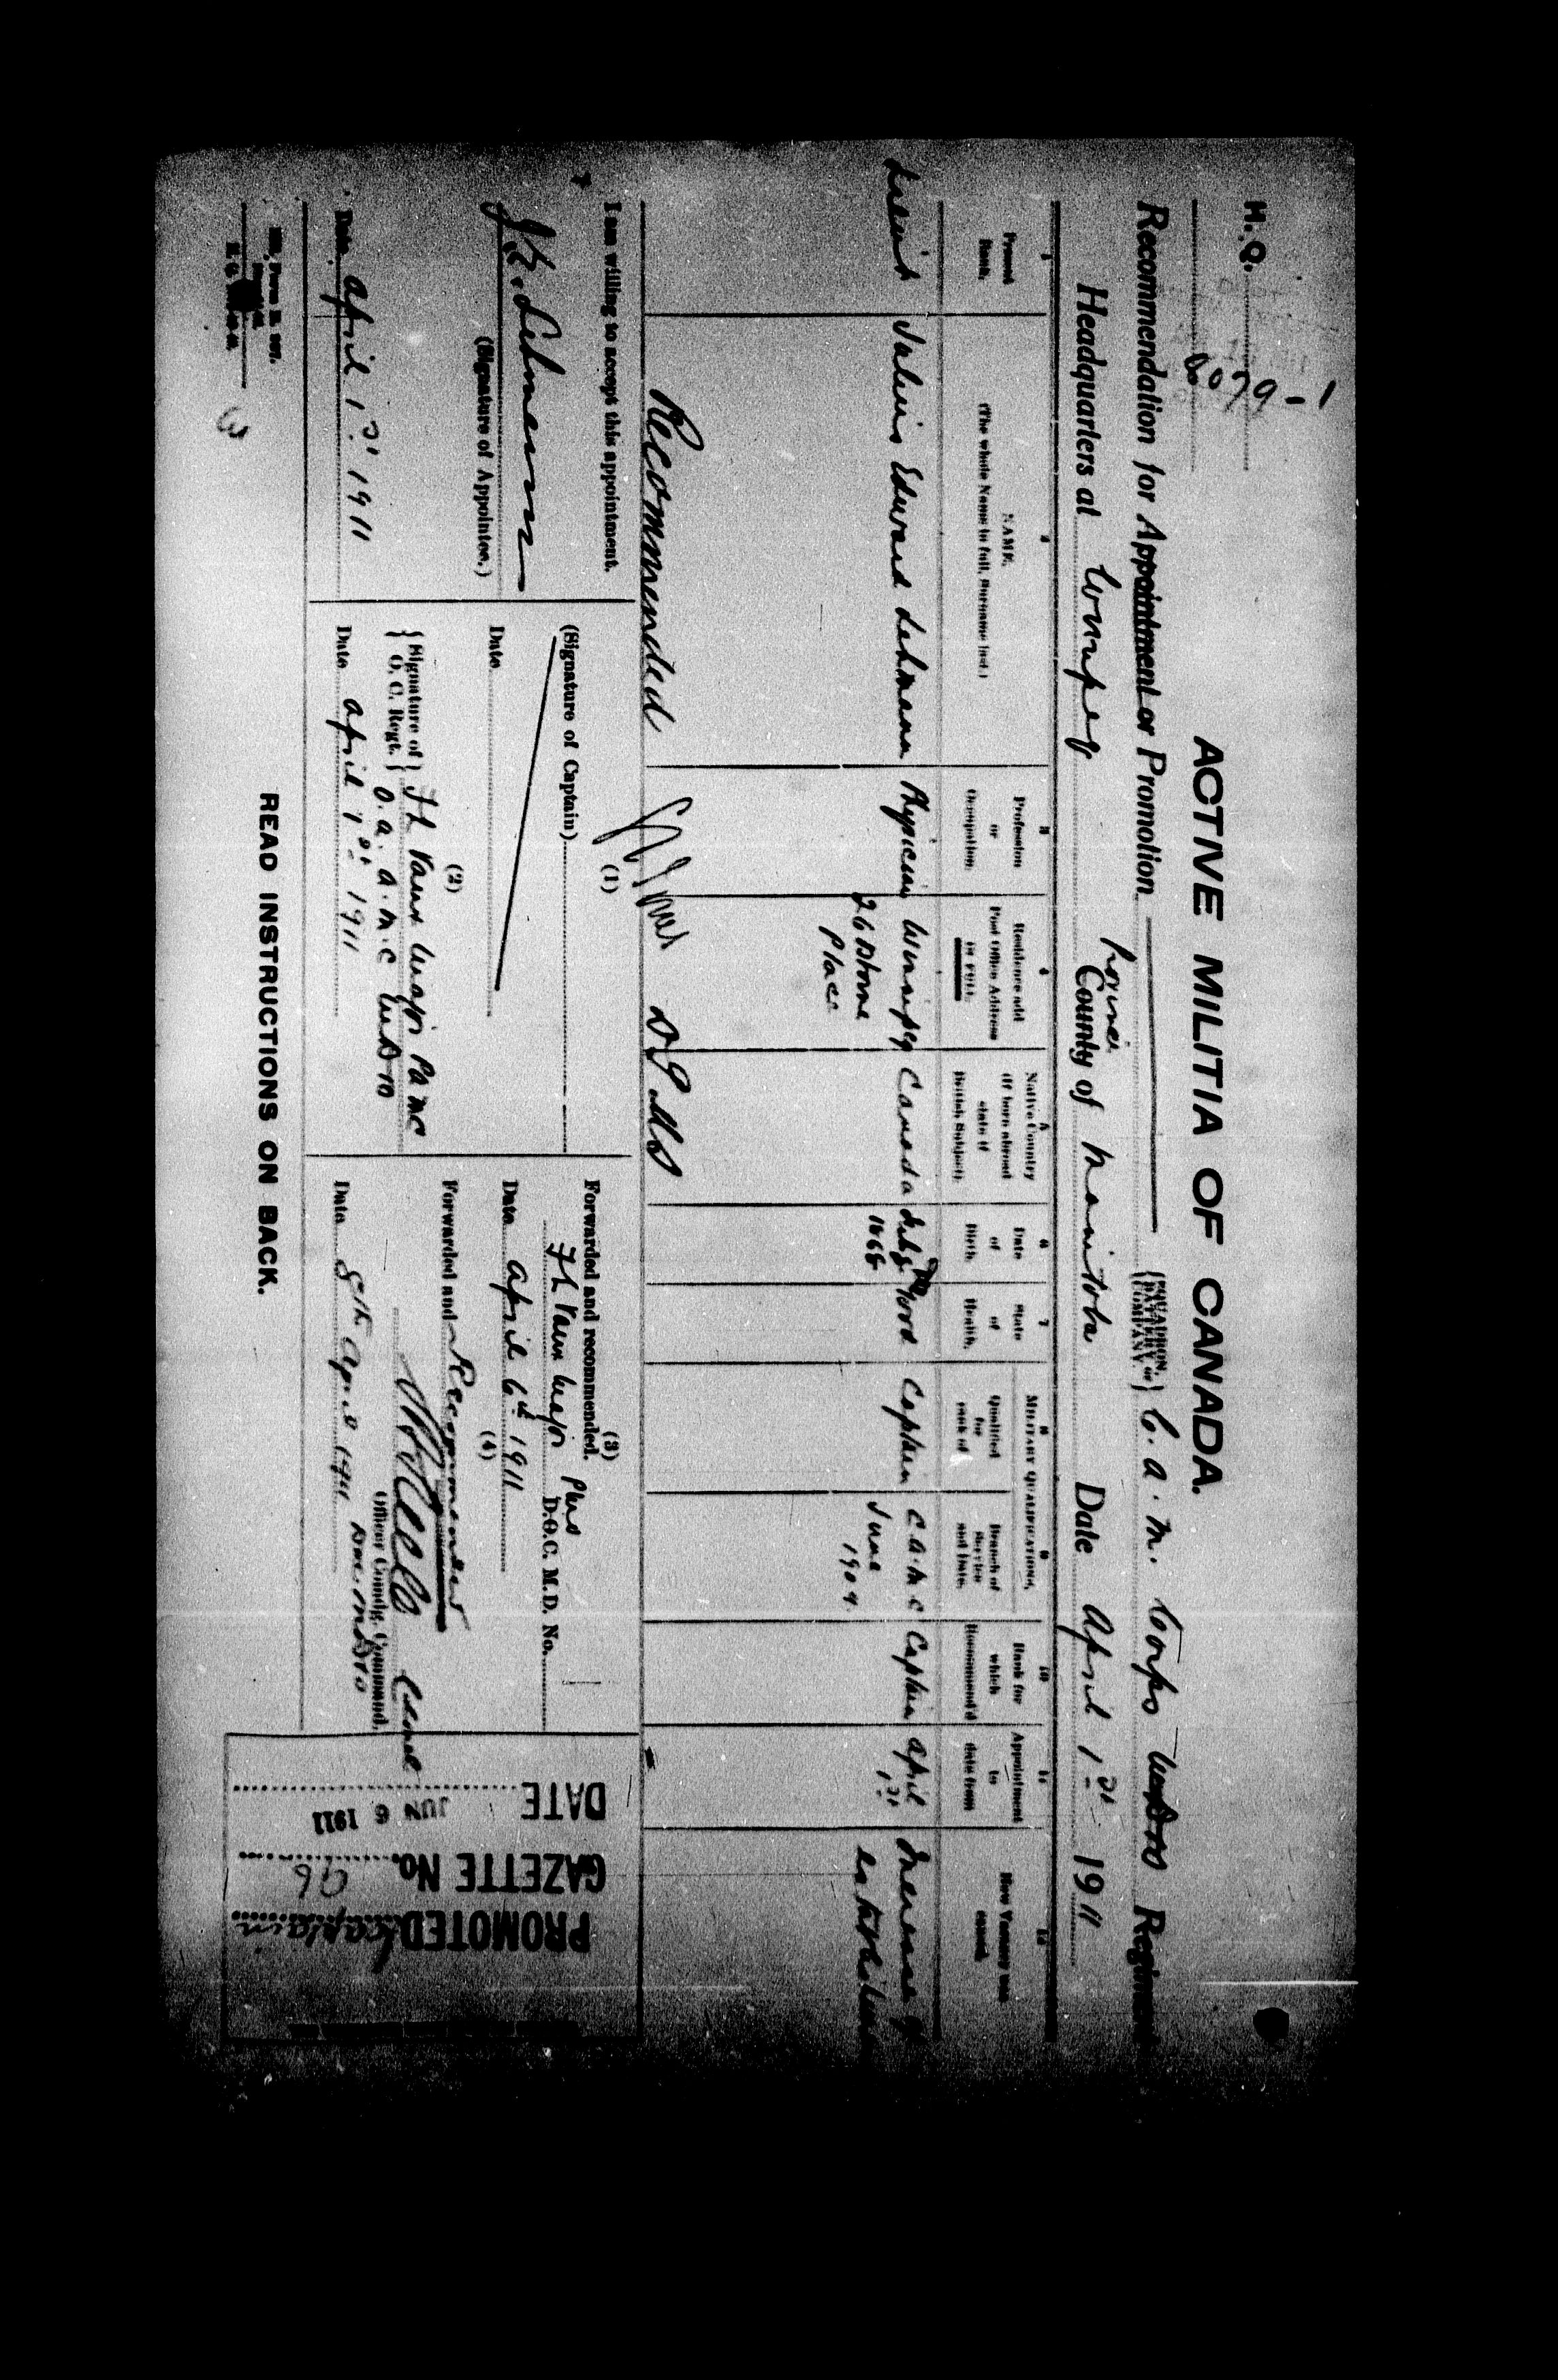 H. Q.
6079-1
ACTIVE MILITIA OF CANADA.
Recommendation for Appointment or Promotion {SQUADRON, BATTERY or COMPANY.} C. A. M. Corps Regiment
Headquarters at Winnipeg County of Manitoba Date April 1st 1911
1 2 3 4 5 6 7 MILITARY QUALIFICATIONS. 10 11 12
8 9
Present Rank.
NAME.
(The whole Name in full, Surname last.)
Profession or Occupation.
Residence and Post Office Address IN FULL.
Native Country (If born abroad state if British Subject).
Date of Birth.
State of Health.
Qualified for rank of
Branch of Service and Date.
Rank for which Recommend'd
Appointment to date from
How Vacancy was caused.
Lieut Julius Edward Lehmann Physician Winnipeg Canada Good Captain C.A.M.C Captain April Increase of
26 Place 1868 June 1st
1909
Recommended DGMS
I am willing to accept this appointment.
J. E. Lehmann
(Signature of Appointee.)
Date April 1st 1911
(1)
(Signature of Captain)
Date
(2)
{Signature of O. C. Regt.} Vaux Major PAMC
O.C. A.M.C
Date April 1st 1911
(3)
Forwarded and recommended.
Vaux Major
D.O.C. M.D. No.
Date April 6th 1911
(4)
Forwarded and Recommended
Officer Comdg. Command.
Date 8th April 1911
PROMOTED Captain
GAZETTE No. 96
DATE JUN 6 1911
READ INSTRUCTIONS ON BACK.
3